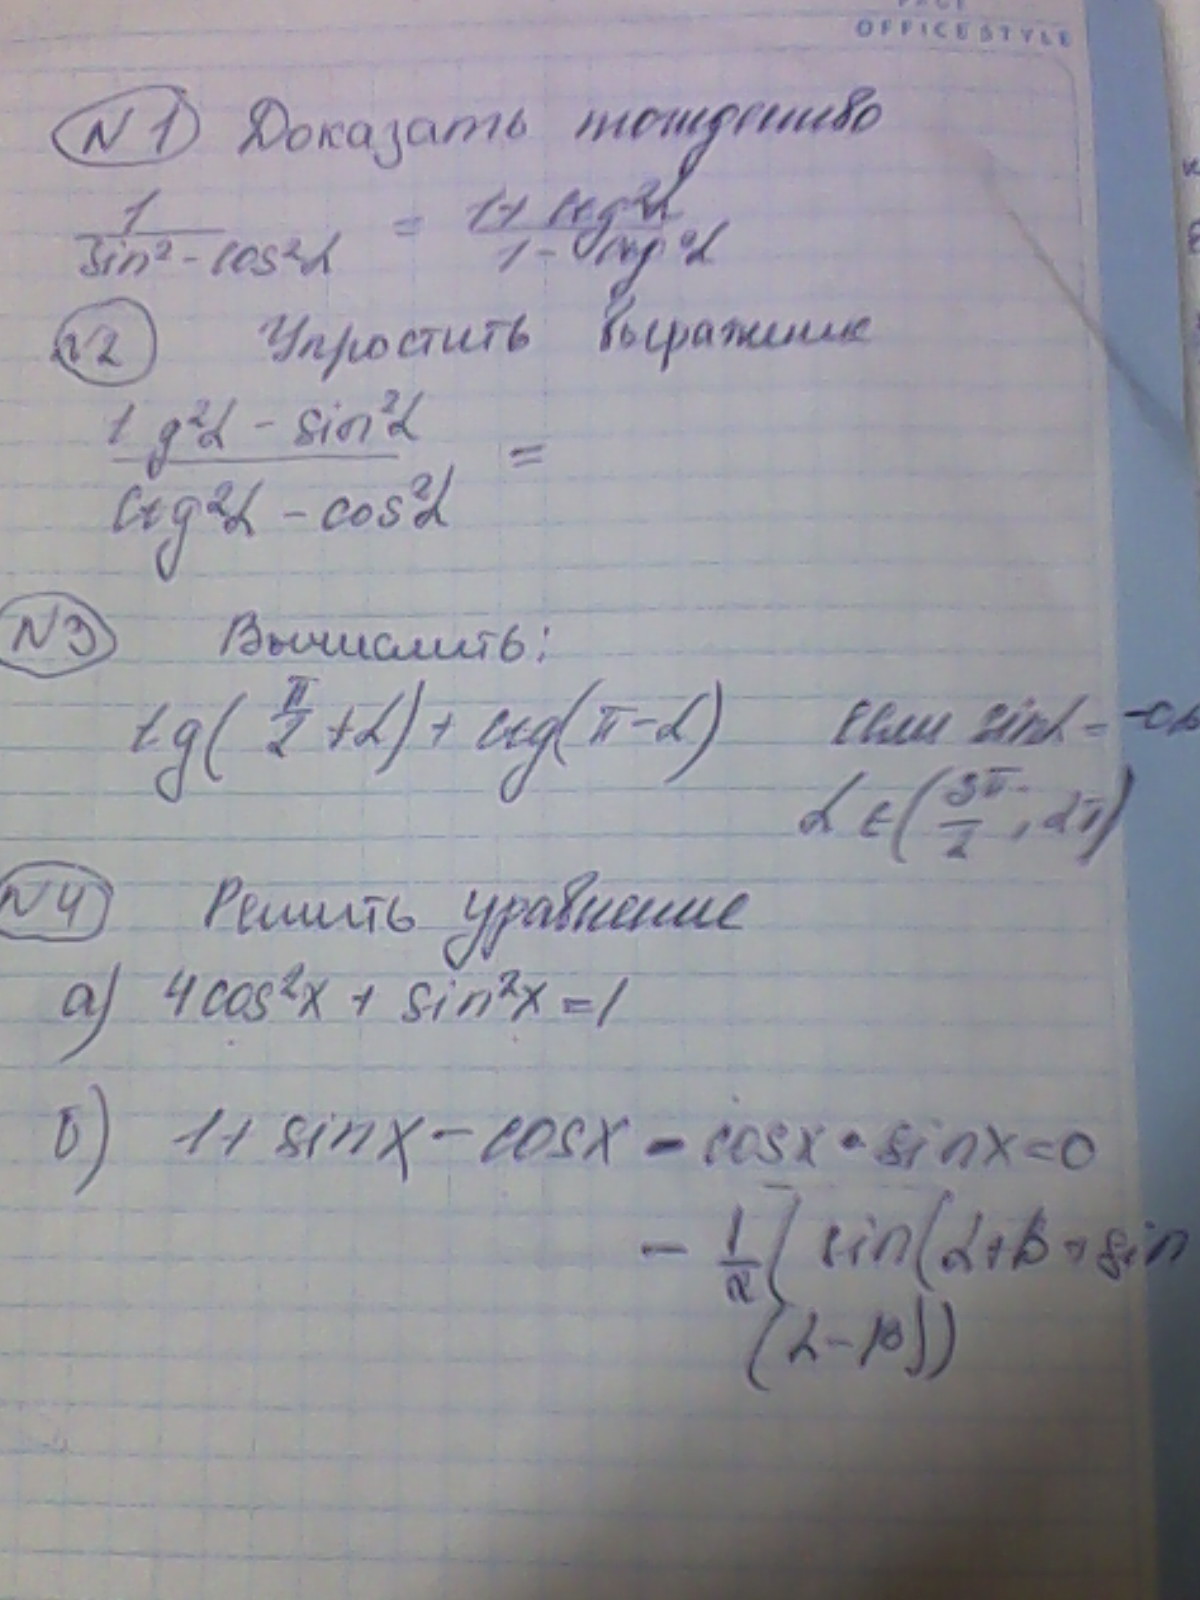 OFFICE STYLE
N1 Доказать тождество
1/(sin² - cos²α) = (1 + ctg²α)/(1 - ctg²α)
N2 Упростить выражение
(tg²α - sin²α)/(ctg²α - cos²α) =
N3 Вычислить:
tg(π/2 + α) + ctg(π - α) Если sinα = -0,
α ∈ (3π/2, 2π)
N4 Решить уравнение
а) 4cos²x + sin²x = 1
б) 1 + sinx - cosx - cosx · sinx = 0
- 1/2 (sin(α+β + sin
(α - β))